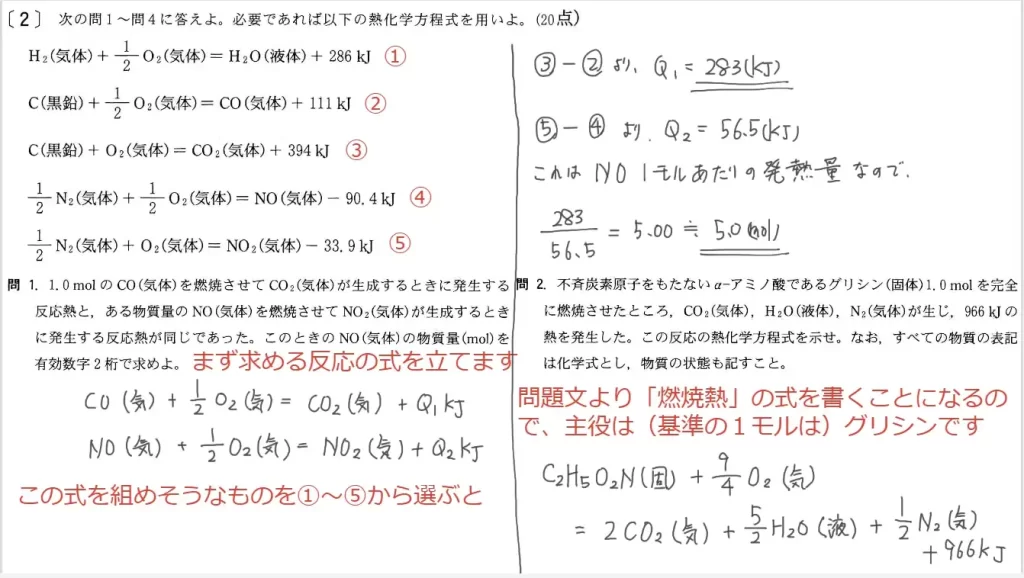 〔2〕 次の問1～問4に答えよ。必要であれば以下の熱化学方程式を用いよ。(20点)
H₂(気体)＋1/2 O₂(気体)＝H₂O(液体)＋286 kJ ①
C(黒鉛)＋1/2 O₂(気体)＝CO(気体)＋111 kJ ②
C(黒鉛)＋O₂(気体)＝CO₂(気体)＋394 kJ ③
1/2 N₂(気体)＋1/2 O₂(気体)＝NO(気体)－90.4 kJ ④
1/2 N₂(気体)＋O₂(気体)＝NO₂(気体)－33.9 kJ ⑤
問 1. 1.0 molのCO(気体)を燃焼させてCO₂(気体)が生成するときに発生する
反応熱と，ある物質量のNO(気体)を燃焼させてNO₂(気体)が生成するとき
に発生する反応熱が同じであった。このときのNO(気体)の物質量(mol)を
有効数字2桁で求めよ。 まず求める反応の式を立てます
CO (気) + 1/2 O₂ (気) = CO₂ (気) + Q₁ kJ
NO (気) + 1/2 O₂ (気) = NO₂ (気) + Q₂ kJ
この式を組めそうなものを①～⑤から選ぶと
③－② より、Q₁ = 283(kJ)
⑤－④ より、Q₂ = 56.5(kJ)
これは NO 1モルあたりの発熱量なので、
283/56.5 = 5.00 ≒ 5.0(mol)
問 2. 不斉炭素原子をもたないα-アミノ酸であるグリシン(固体)1.0 molを完全
に燃焼させたところ，CO₂(気体)，H₂O(液体)，N₂(気体)が生じ，966 kJの
熱を発生した。この反応の熱化学方程式を示せ。なお，すべての物質の表記
は化学式とし，物質の状態も記すこと。
問題文より「燃焼熱」の式を書くことになるの
で、主役は（基準の１モルは）グリシンです
C₂H₅O₂N(固) + 9/4 O₂ (気)
= 2CO₂ (気) + 5/2 H₂O (液) + 1/2 N₂ (気)
+ 966kJ